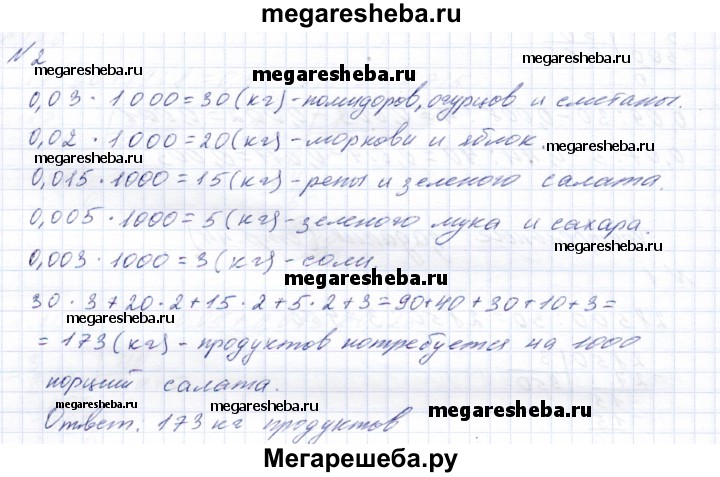 megaresheba.ru
№ 2
megaresheba.ru
megaresheba.ru
0,03 · 1000 = 30 (кг) - помидоров, огурцов и сметаны.
0,02 · 1000 = 20 (кг) - моркови и яблок.
megaresheba.ru
megaresheba.ru
0,015 · 1000 = 15 (кг) - репы и зеленого салата.
0,005 · 1000 = 5 (кг) - зеленого лука и сахара.
megaresheba.ru
0,003 · 1000 = 3 (кг) - соли
megaresheba.ru
30 · 3 + 20 · 2 + 15 · 2 + 5 · 2 + 3 = 90 + 40 + 30 + 10 + 3 =
megaresheba.ru
megaresheba.ru
= 173 (кг) - продуктов потребуется на 1000
порций салата.
megaresheba.ru
Ответ: 173 кг продуктов
megaresheba.ru
Мегарешеба.ру